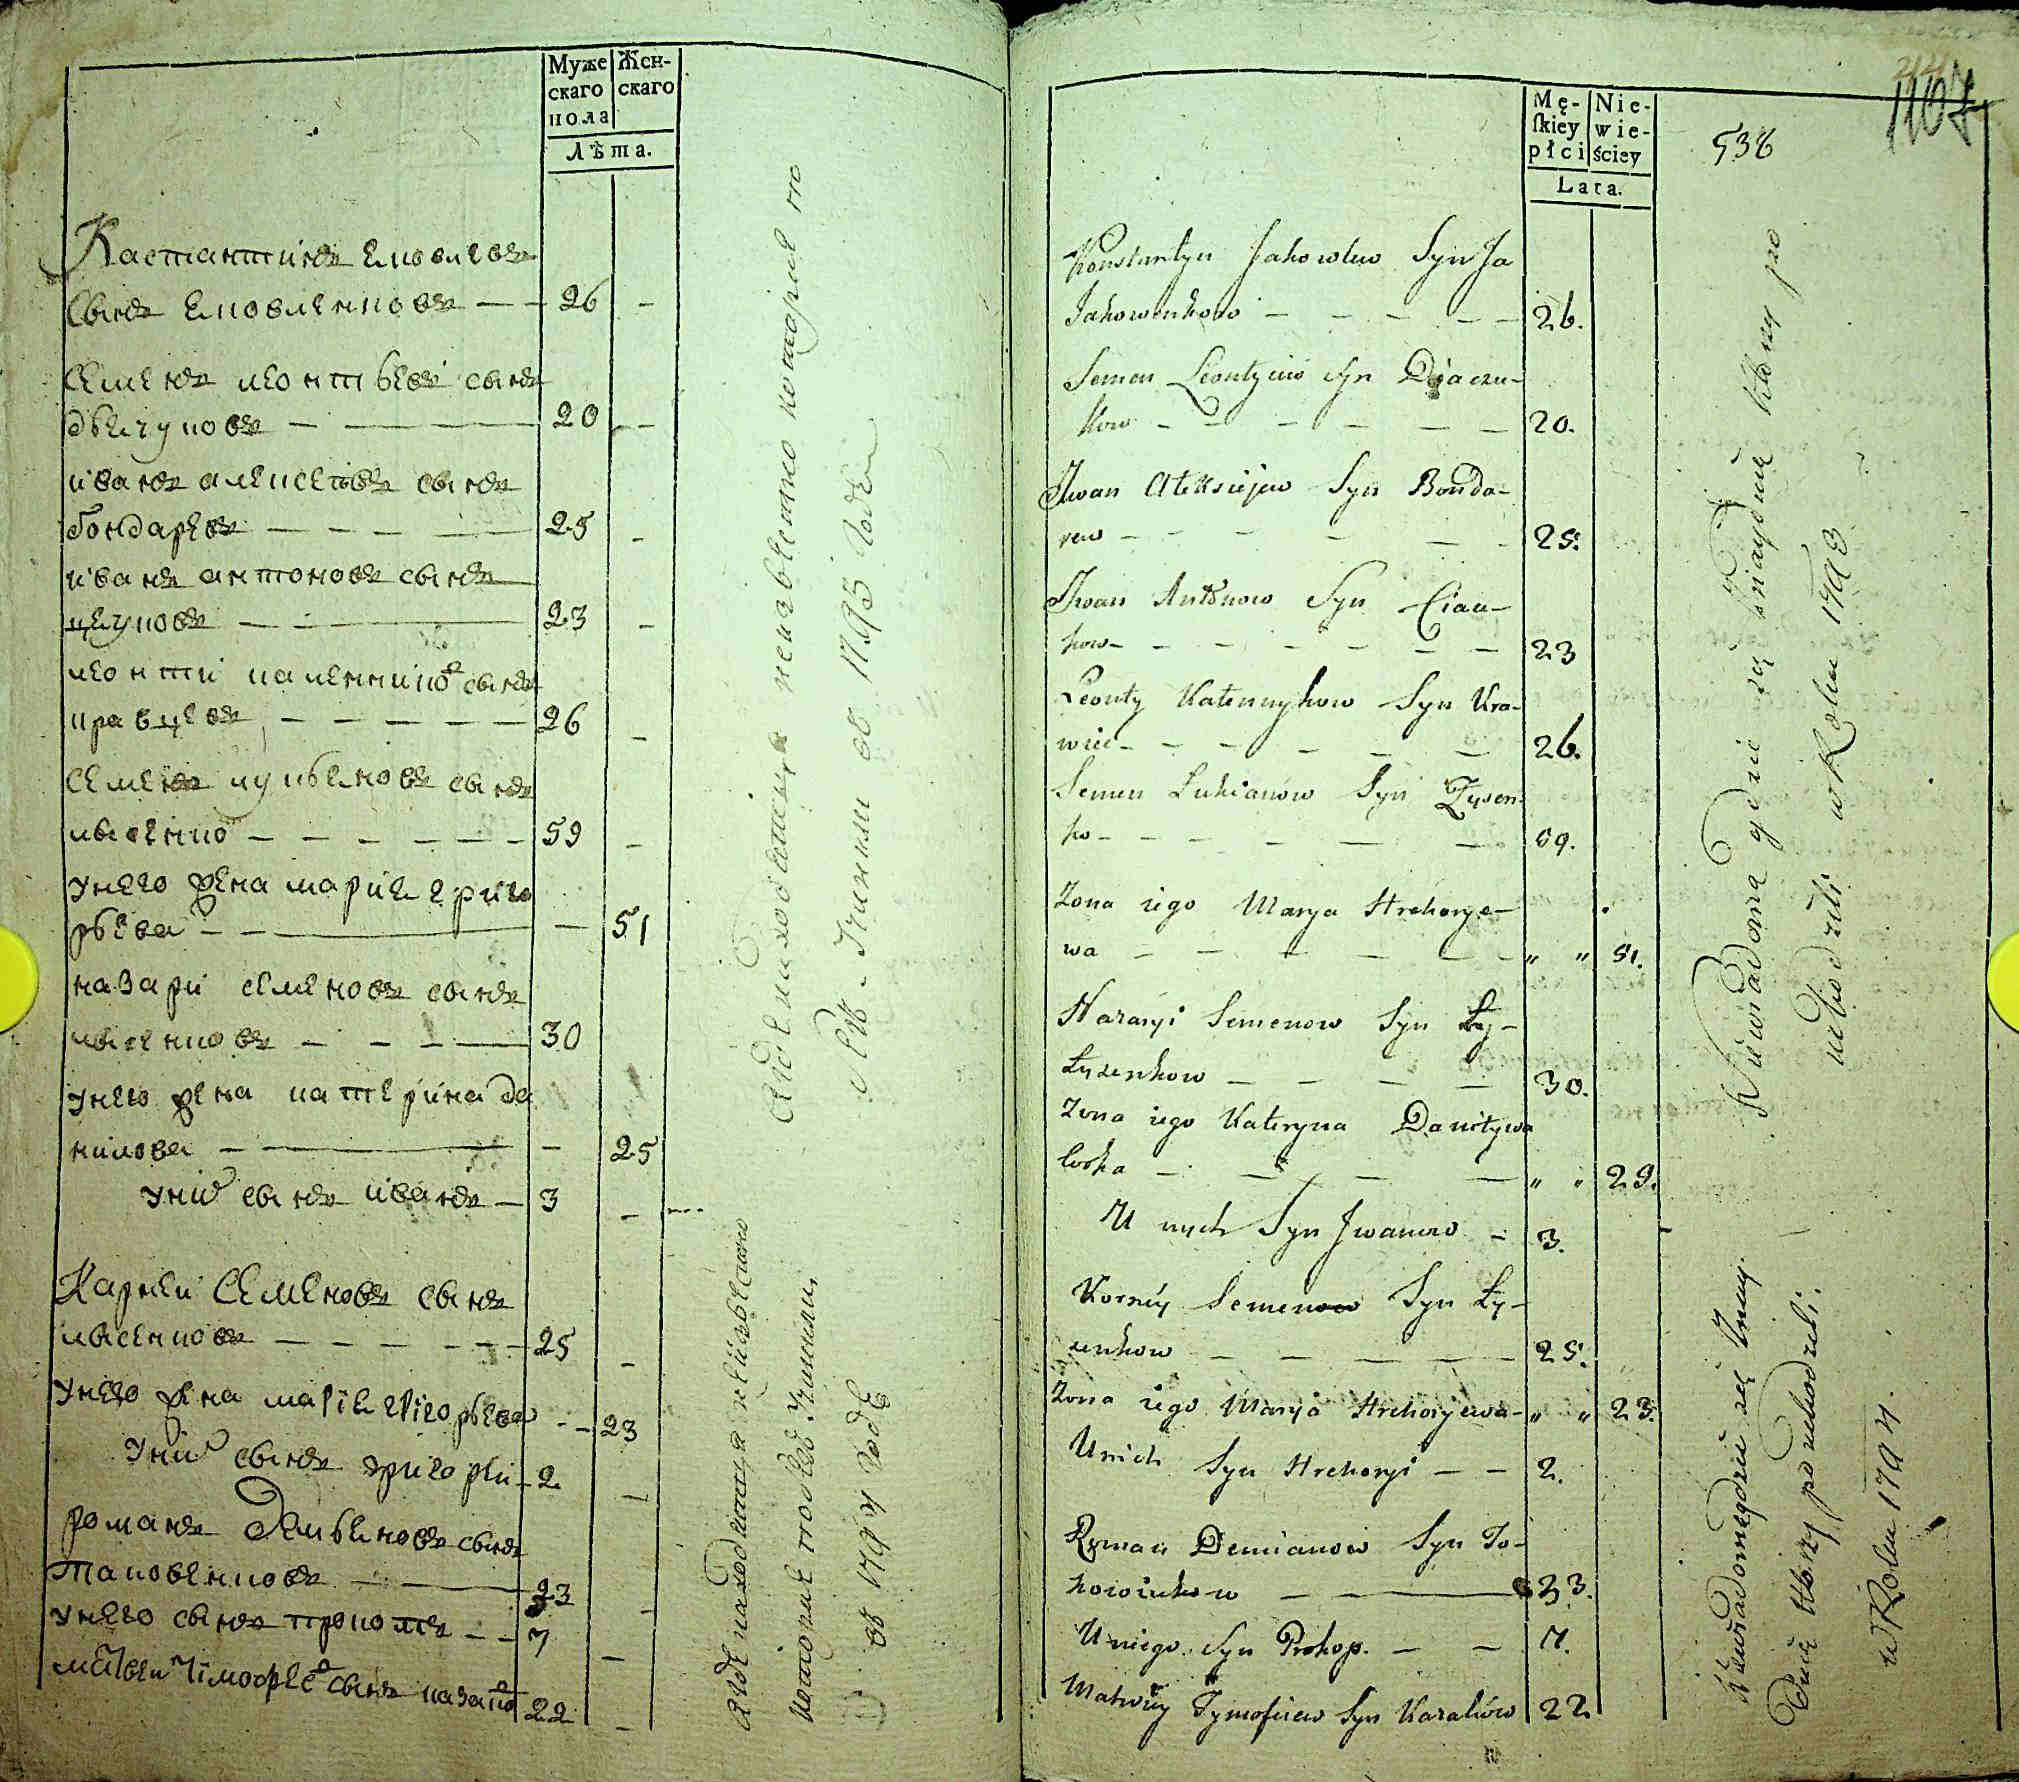 Муже
скаго
пола
Женскаго
Лѣта.
Кастантинъ Яковлевъ
Сынъ Яковленковъ — — 26 —
Семенъ леонтьевъ сынъ
дьячуковъ — — 20 —
иванъ алексеевъ сынъ
бондаревъ — — — — 25 —
иванъ антоновъ сынъ
цяуковъ — — — 23 —
леонти каленниковъ сынъ
кравцевъ — — — — — 26 —
Семенъ лукьяновъ сынъ
лысенко — — — — — — 59 —
унего жена марья григо
рьева — — — 51
назари семеновъ сынъ
лысенковъ — — — — 30
унего жена катерина да
нилова — — — 25
уних сынъ иванъ — 3 —
Карнеи Семеновъ сынъ
лысенковъ — — — — — — 25 —
унего жена марья григорьева — — 23
уних сынъ григореи — 2 —
романъ Демьяновъ сынъ
таковенковъ — — 33 —
унего сынъ прокопъ — — 7 —
матвеи тимофеевъ сынъ казаковъ 22 —
где находятся неизвестно которые по
в 1795 годе
где находятся неизвестно
которые
в 1794 годе
Mę-
skiey
płci
Nie-
wie-
ściey
Lata.
538
1107
Konstantyn Jakowlew Syn Ja
Jakowenkow — — — — — 26.
Semen Leontyiew Syn Diaczu-
kow — — — — — — 20.
Iwan Aleksiejew Syn Bonda-
rew — — — — — — 25.
Iwan Antonow Syn Ciau-
kow — — — — — — — 23
Leonty Kalennykow Syn Kra-
wiec — — — — — — 26.
Semen Lukianow Syn Łysen-
ko — — — — — — 59.
Żona iego Marya Hrehorye-
wa — — — — — — „ „ 51.
Nazaryi Semenow Syn Ły-
Łyzenkow — — — — 30.
Żona iego Kateryna Daniływa
— — — — — „ „ 29.
U nych Syn Iwanow — 3.
Korniy Semenow Syn Ły-
zenkow — — — — — 25.
Żona iego Marya Hrehoryewa — „ „ 23.
Unich Syn Hrehoryi — — 2.
Roman Demianow Syn To-
— — 33.
Uniego Syn Prokop. — — 7.
Matwiy Tymofiiew Syn Kazaków 22
Niewiadoma gdzie się znayduią którzy po
uchodzili w Roku 1793
Niewiadomo gdzie się znay
duią którzy pouchodzili.
w Roku 1794.